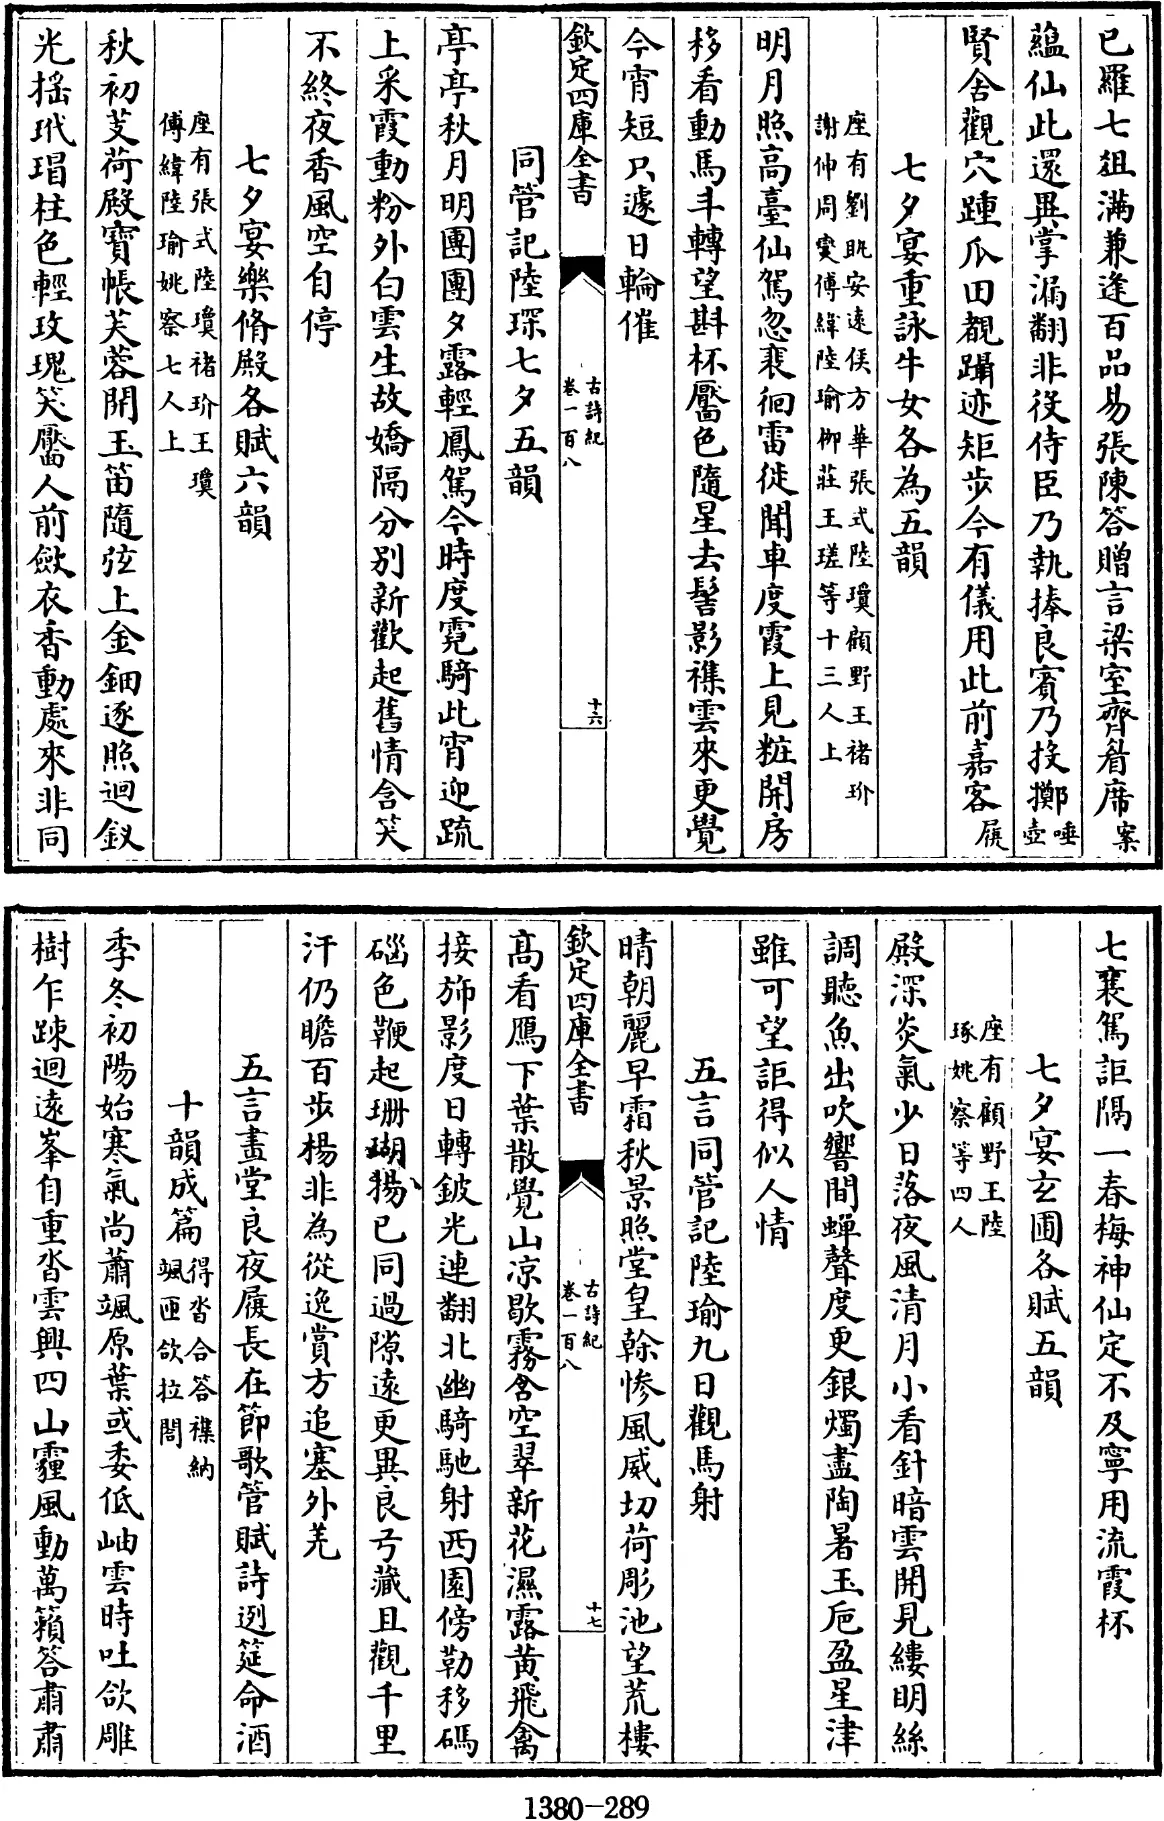 已羅七俎滿兼逢百品易張陳答贈言梁室齊眉席案
蘊仙此還異掌漏翻非役侍臣乃執捧良賓乃投擲唾壺
賢舍觀穴踵爪田覩躡迹矩步今有儀用此前嘉客屐
七夕宴重詠牛女各為五韻
座有劉眺安遠侯方華張式陸瓊顧野王褚玠
謝伸周𤅢傅緯陸瑜柳莊王瑳等十三人上
明月照高臺仙駕忽裵徊雷徙聞車度霞上見粧開房
移看動馬斗轉望斟杯靨色隨星去髻影襍雲來更覺
今宵短只遽日輪催
欽定四庫全書
古詩紀
卷一百八
十六
同管記陸琛七夕五韻
亭亭秋月明團團夕露輕鳳駕今時度霓騎此宵迎疏
上采霞動粉外白雲生故嬌隔分别新歡起舊情含笑
不終夜香風空自停
七夕宴樂脩殿各賦六韻
座有張式陸瓊褚玠王瓊
傅緯陸瑜姚察七人上
秋初芰荷殿寶帳芙蓉開玉笛隨弦上金鈿逐照迴釵
光搖玳瑁柱色輕玫瑰笑靨人前斂衣香動處來非同
七襄駕詎隅一春梅神仙定不及寧用流霞杯
七夕宴玄圃各賦五韻
座有顧野王陸
琢姚察等四人
殿深炎氣少日落夜風清月小看針暗雲開見縷明絲
調聽魚出吹響間蟬聲度更銀燭盡陶暑玉卮盈星津
雖可望詎得似人情
五言同管記陸瑜九日觀馬射
晴朝麗早霜秋景照堂皇榦慘風威切荷彫池望荒樓
欽定四庫全書
古詩紀
卷一百八
十七
高看鴈下葉散覺山涼歇霧含空翠新花濕露黄飛禽
接斾影度日轉鈹光連翻北幽騎馳射西園傍勒移碼
碯色鞭起珊瑚揚已同過隙遠更異良弓藏且觀千里
汗仍瞻百步楊非為從逸賞方追塞外羌
五言畫堂良夜履長在節歌管賦詩迾筵命酒
十韻成篇得沓合答襍納
颯匝欱拉閤
季冬初陽始寒氣尚蕭颯原葉或委低岫雲時吐欱雕
樹乍踈迴遠峯自重沓雲興四山霾風動萬籟答肅肅
1380—289